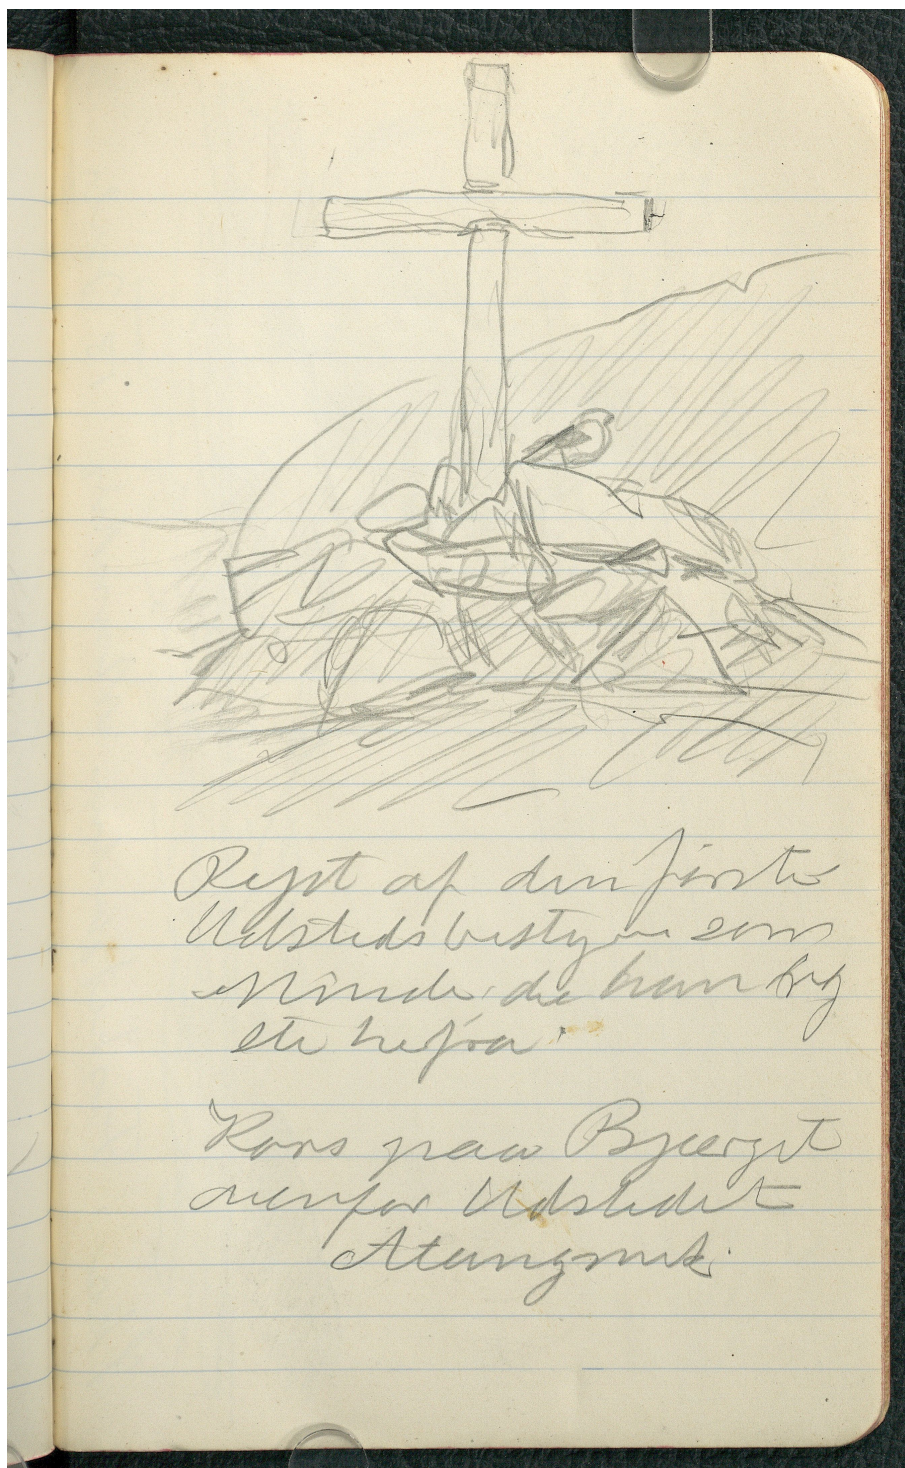 Rejst af den første
Udstedsbestyrer som
Minde da han rej
ste herfra.
Kors paa Bjærget
ovenfor Udstedet
Atangmik.